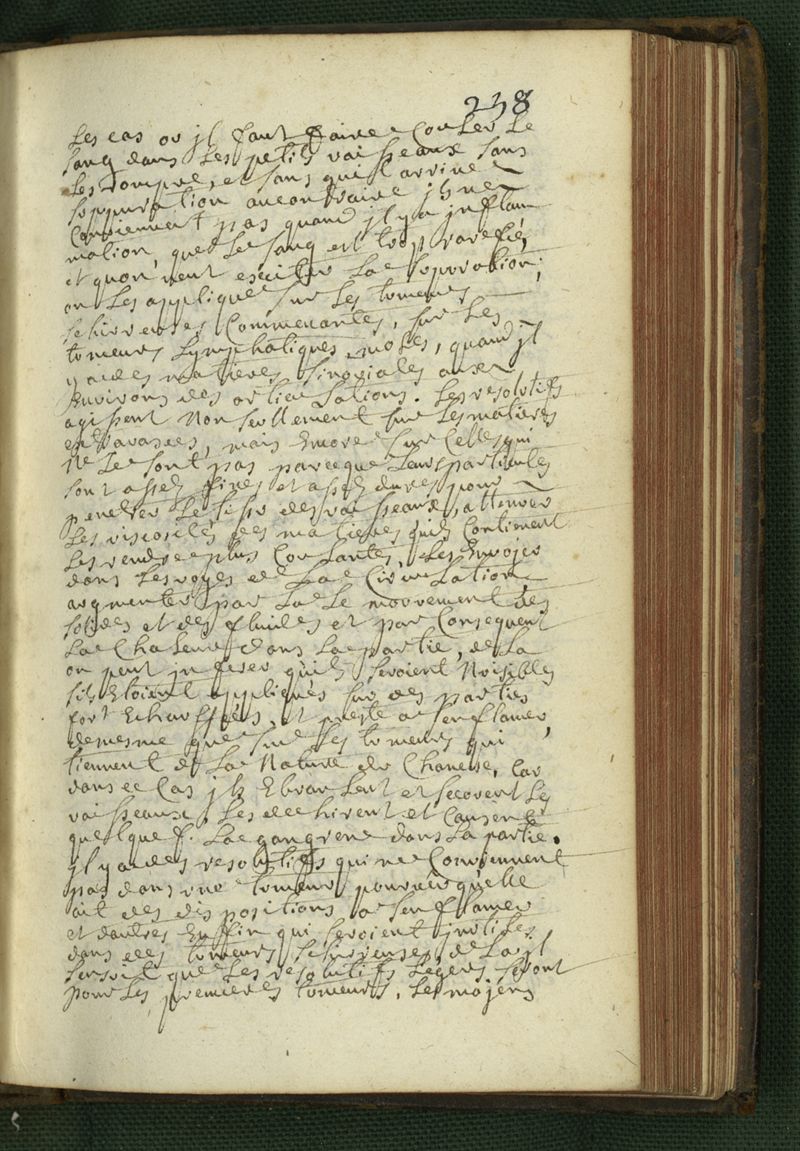 238
Les cas ou jl faut faire Couler Le
sang dans Les petits vaisseaux sans
Les rompre, et sans quil arrive
suppuration aucontraire jls ne
Conviennent pas quand jl y a jnflam
mation, que Le sang est trop rarefié,
et quon veut exciter La supuration;
on Les applique sur Les tumeurs
schirreuses Commencantes, sur Les
tumeurs Lymphatiques, moles, quand jl
y a des matieres sinoviales aux
Environs des articulations. Les resolutifs
agissent Non seullement sur Les matieres
extravasées, mais Encore sur Celles qui
Ne Le sont pas parceque Leurs particules
sont assez fines et assez dures pour
penetrer Le tissu des vaisseaux, attenuer
Les viscosités des matieres quils Contienent
Les rendre plus Coulantes, Les Envoyer
dans Les voyes de La Circulation
augmenter par La Le mouvement des
solides et des fluides et par Consequent
La Chaleur dans La partie, de La
on peut jnferer quils seroient Nuisibles
sils Etoient appliqués sur des parties
fort Echauffées, et preste a senflamer,
demesme que sur Les tumeurs qui
tiennent de La Nature du Chancre, Car
dans ce Cas jls Ebranlent et secouent Les
vaisseaux, Les dechirent et Causent
quelque f. La gangrene dans La partie.
jl y a des resolutifs qui ne Conviennent
pas dans une tumeur pourveu quelle
ait des dispositions a senflamer
et dautres Enfin qui seroient jnutiles
dans des tumeurs schirreuses, de La jl
sensuit que Les resolutifs Legers seront
pour Les premieres tumeurs, Les moyens